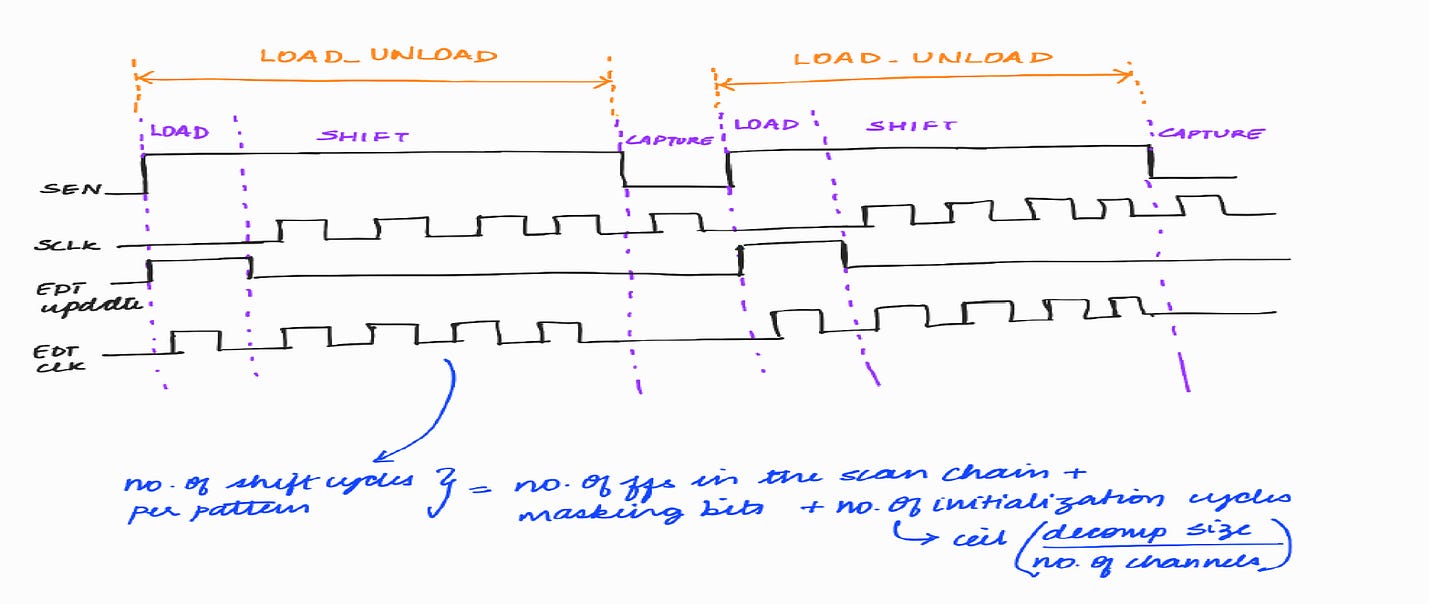 LOAD_UNLOAD
LOAD_UNLOAD
LOAD
SHIFT
CAPTURE
LOAD
SHIFT
CAPTURE
SEN
SCLK
EDT
update
EDT
CLK
no. of shift cycles } = no. of ffs in the scan chain +
per pattern masking bits + no. of initialization cycles
↳ ceil (decomp size
no. of channels)